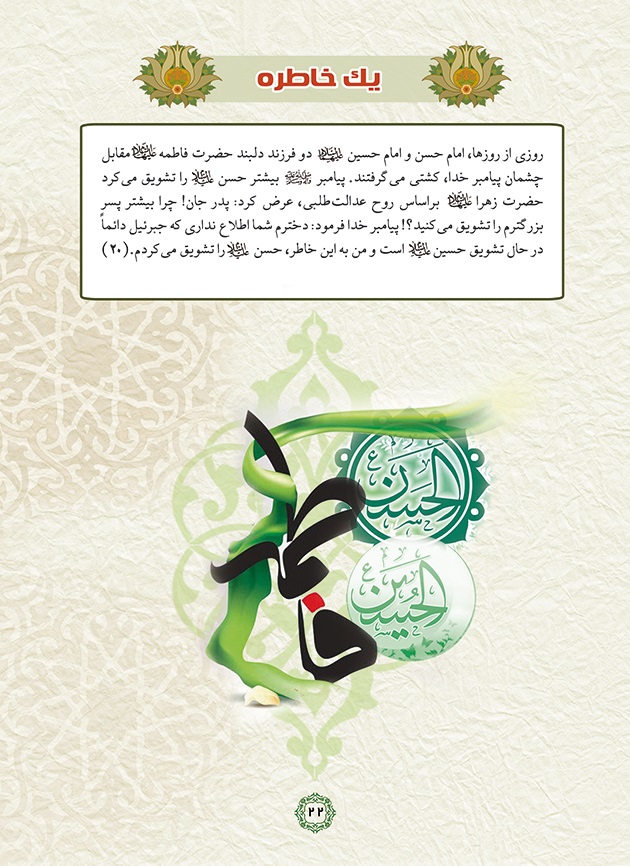 یك خاطره
روزی از روزها، امام حسن و امام حسین علیهماالسلام دو فرزند دلبند حضرت فاطمه علیهاالسلام مقابل
چشمان پیامبر خدا، کشتی می‌گرفتند. پیامبر ﷺ بیشتر حسن علیه‌السلام را تشویق می‌کرد
حضرت زهرا علیهاالسلام براساس روح عدالت‌طلبی، عرض کرد: پدر جان! چرا بیشتر پسر
بزرگترم را تشویق می‌کنید؟! پیامبر خدا فرمود: دخترم شما اطلاع نداری که جبرئیل دائماً
در حال تشویق حسین علیه‌السلام است و من به این خاطر، حسن علیه‌السلام را تشویق می‌کردم. (۲۰)
الحسن
فاطمة
الحسین
۲۲